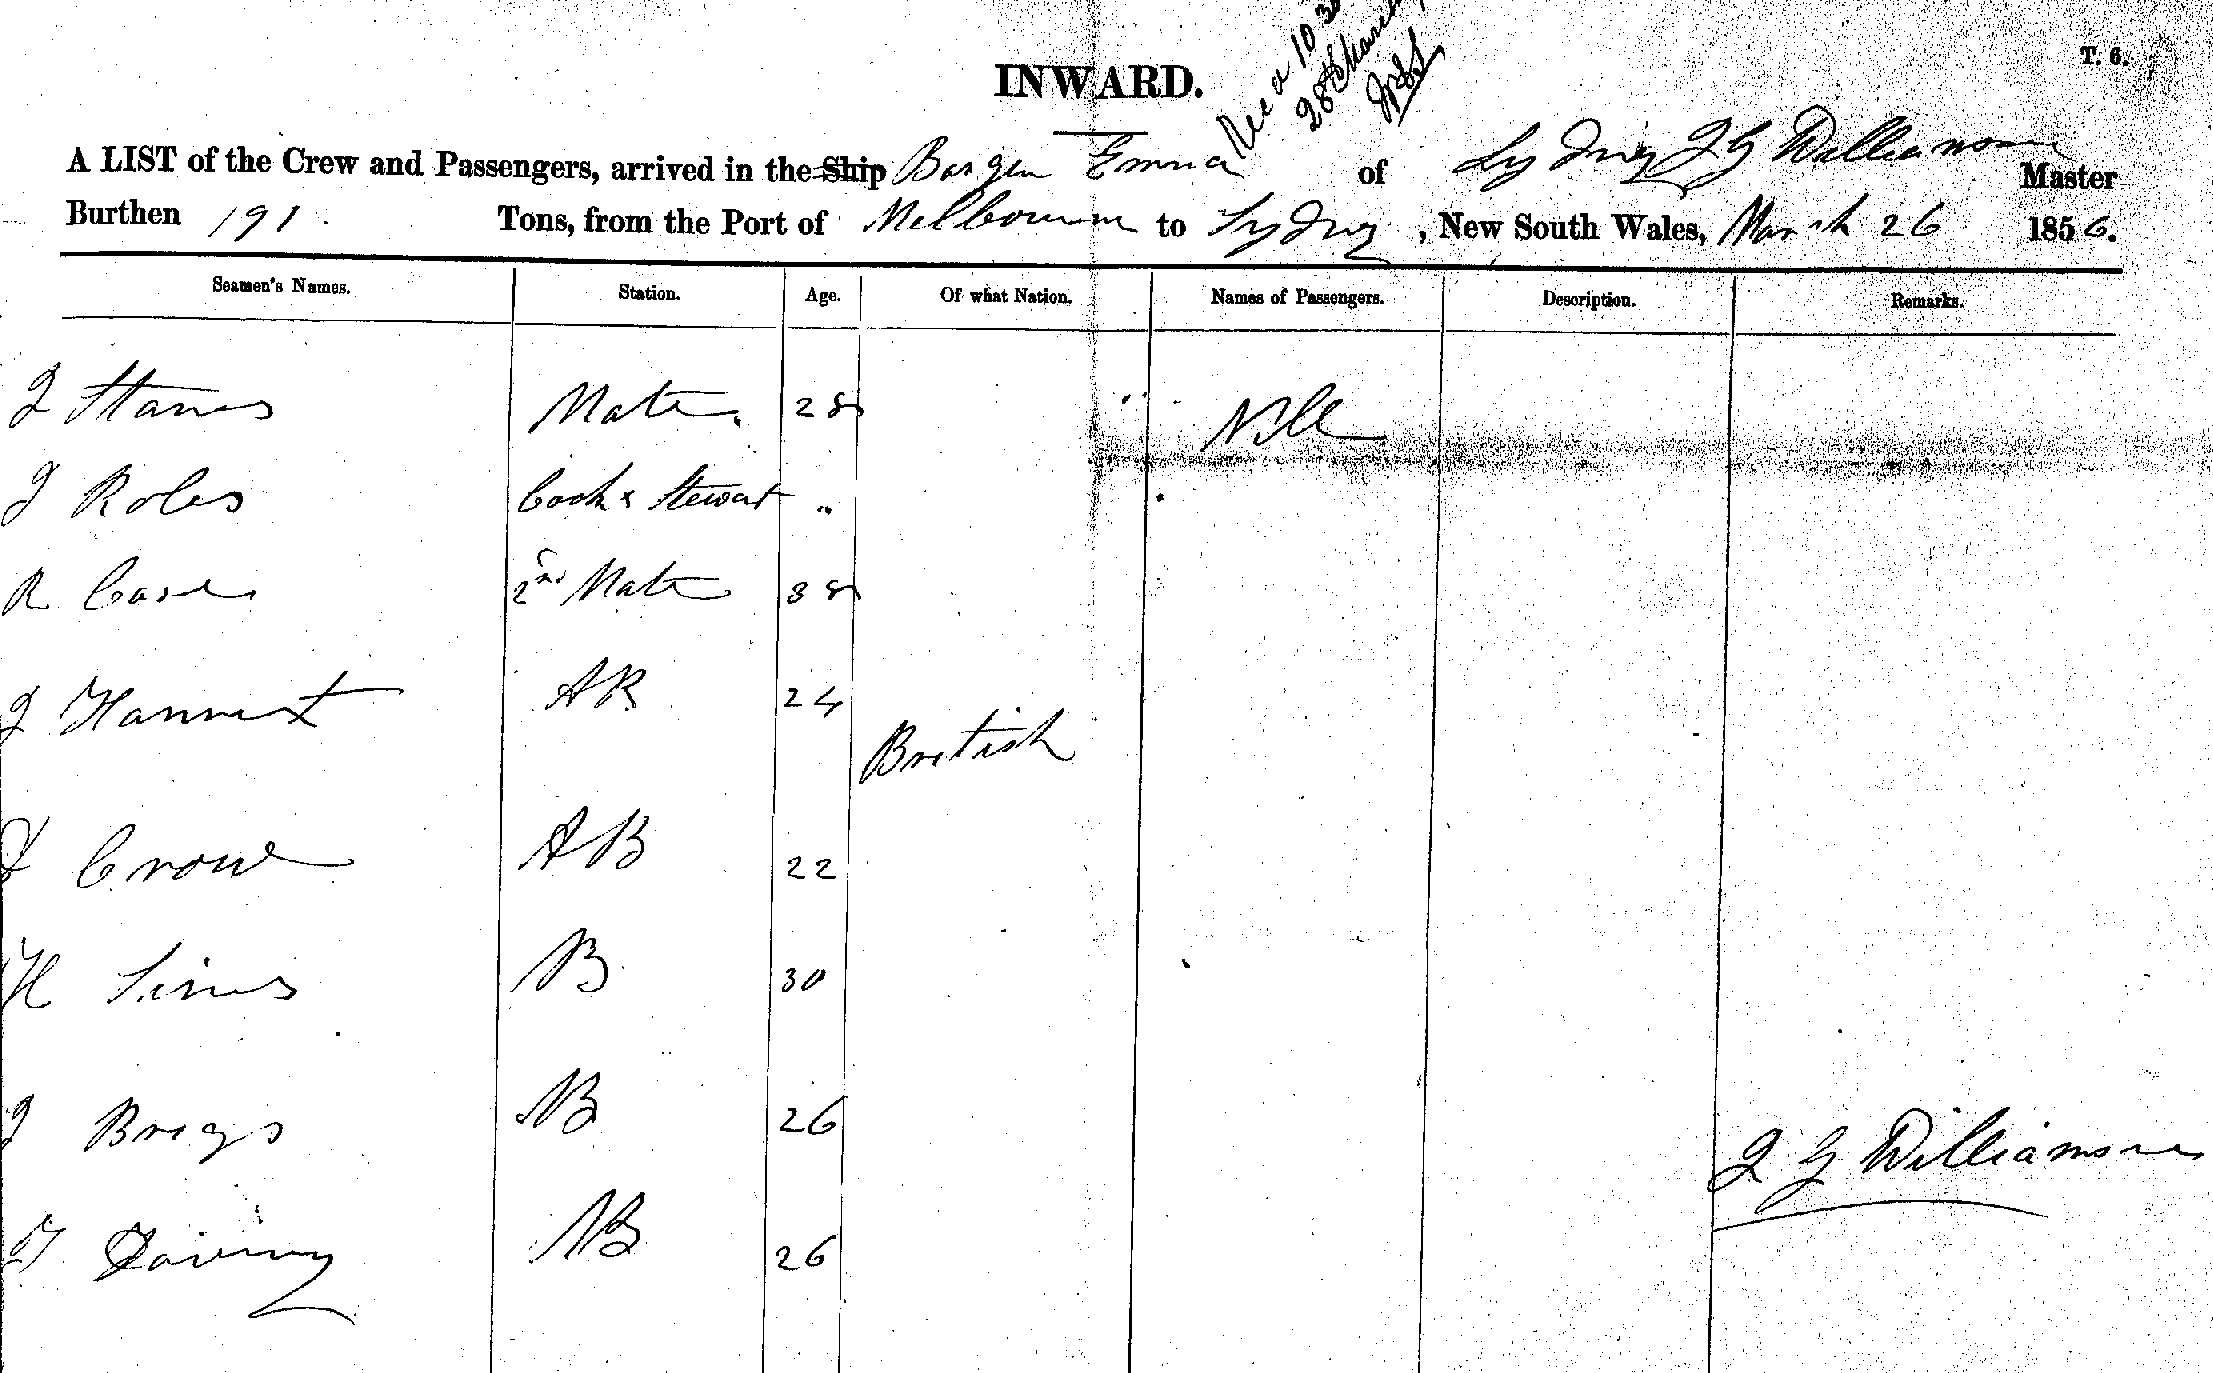 T. 6.
INWARD.
28th March
A LIST of the Crew and Passengers, arrived in the Ship Emma of Sydney J G Williamson Master
Burthen 191. Tons, from the Port of Melbourne to Sydney, New South Wales, March 26 1856.
Seamen's Names. Station. Age. Of what Nation. Names of Passengers. Description. Remarks.
J Mate. 28 Nill
J Roles Cook & Stewart "
R Case 2nd Mate 38
J AB 24
British
Crowe AB 22
H Sims AB 30
J Brigs AB 26
J G Williamson
AB 26